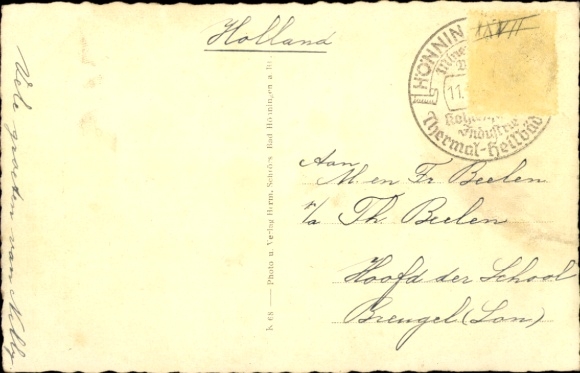 Holland
Vele groeten van Nelly
K 68 — Photo u. Verlag Herm. Schröes, Bad Hönningen a. Rh.
HÖNNIN
11.
Kohlens
Industrie
Thermal-Heilbad
Aan
M. en Fr. Beelen
p/a Th. Beelen
Hoofd der School
Breugel (Son)